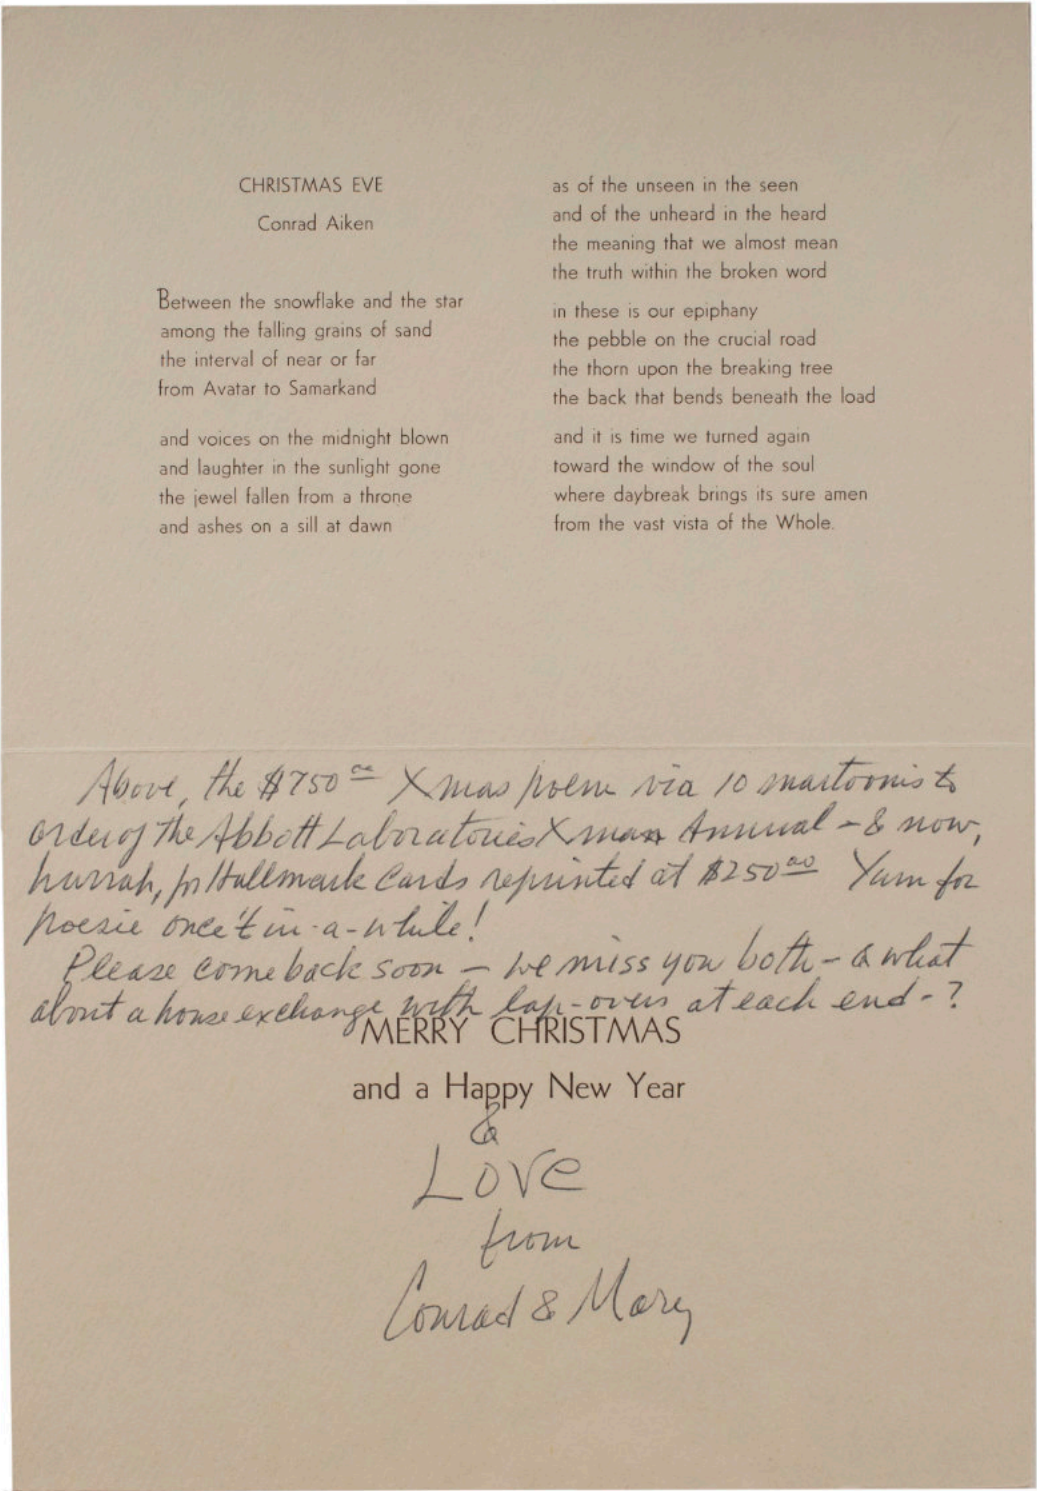 CHRISTMAS EVE
Conrad Aiken
Between the snowflake and the star
among the falling grains of sand
the interval of near or far
from Avatar to Samarkand
and voices on the midnight blown
and laughter in the sunlight gone
the jewel fallen from a throne
and ashes on a sill at dawn
as of the unseen in the seen
and of the unheard in the heard
the meaning that we almost mean
the truth within the broken word
in these is our epiphany
the pebble on the crucial road
the thorn upon the breaking tree
the back that bends beneath the load
and it is time we turned again
toward the window of the soul
where daybreak brings its sure amen
from the vast vista of the Whole.
Above, the $750 00 Xmas poem via 10 martoonis to
order of the Abbott Laboratories Xmas Annual - & now,
hurrah, for Hallmark Cards reprinted at $250 00 Yum for
poesie once't in-a-while!
Please come back soon - we miss you both - & what
about a house exchange with lap-overs at each end - ?
MERRY CHRISTMAS
and a Happy New Year
&
Love
from
Conrad & Mary